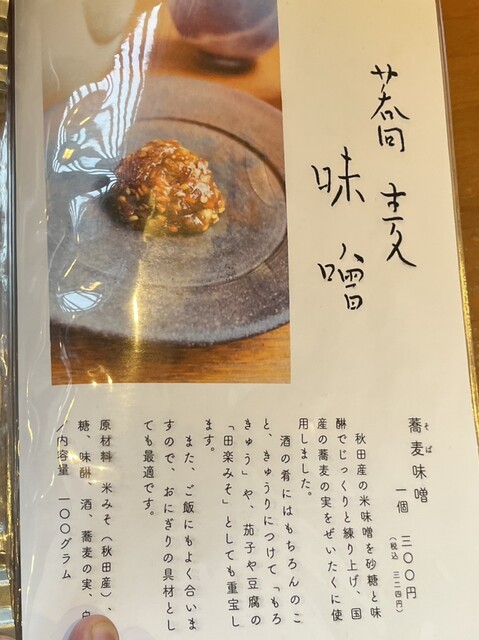 蕎麦
味噌
蕎麦味噌
そば
一個 三〇〇円
（税込 三二四円）
秋田産の米味噌を砂糖と味
醂でじっくりと練り上げ、国
産の蕎麦の実をぜいたくに使
用しました。
酒の肴にはもちろんのこ
と、きゅうりにつけて「もろ
きゅう」や、茄子や豆腐の
「田楽みそ」としても重宝し
ます。
また、ご飯にもよく合いま
すので、おにぎりの具材とし
ても最適です。
原材料 米みそ（秋田産）、
糖、味醂、酒、蕎麦の実、
／内容量 一〇〇グラム